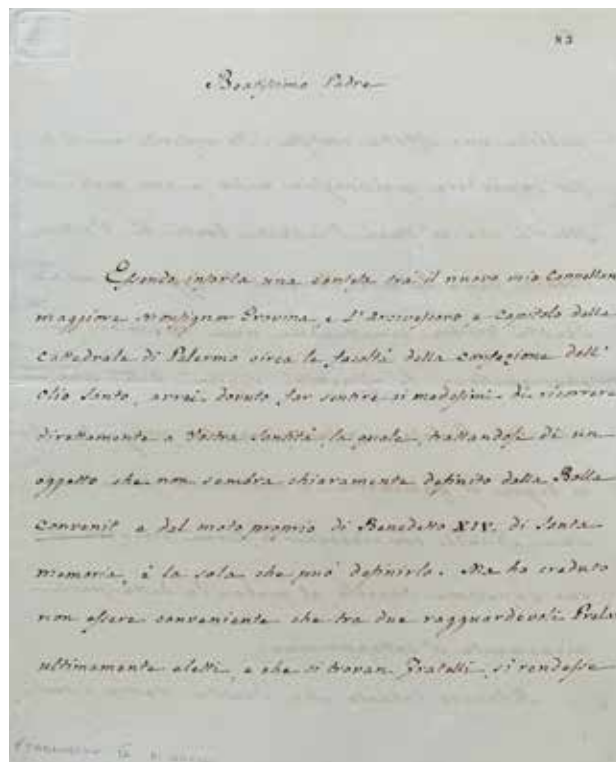 83
Beatissimo Padre
Essendo insorta una contesa tra il nuovo mio Cappellan
maggiore Monsignor Gravina, e L'Arcivescovo, e Capitolo della
Cattedrale di Palermo circa le facoltà della confezione dell'
Olio Santo, avrei dovuto far sentire ai medesimi di ricorrere
direttamente a Vostra Santità, la quale, trattandosi di un
oggetto che non sembra chiaramente definito dalla Bolla
Convenit e dal moto proprio di Benedetto XIV. di santa
memoria, è la sola che può definirlo. Ma ho creduto
non essere conveniente che tra due ragguardevoli Prela
ultimamente eletti, e che si trovan Fratelli, si rendesse